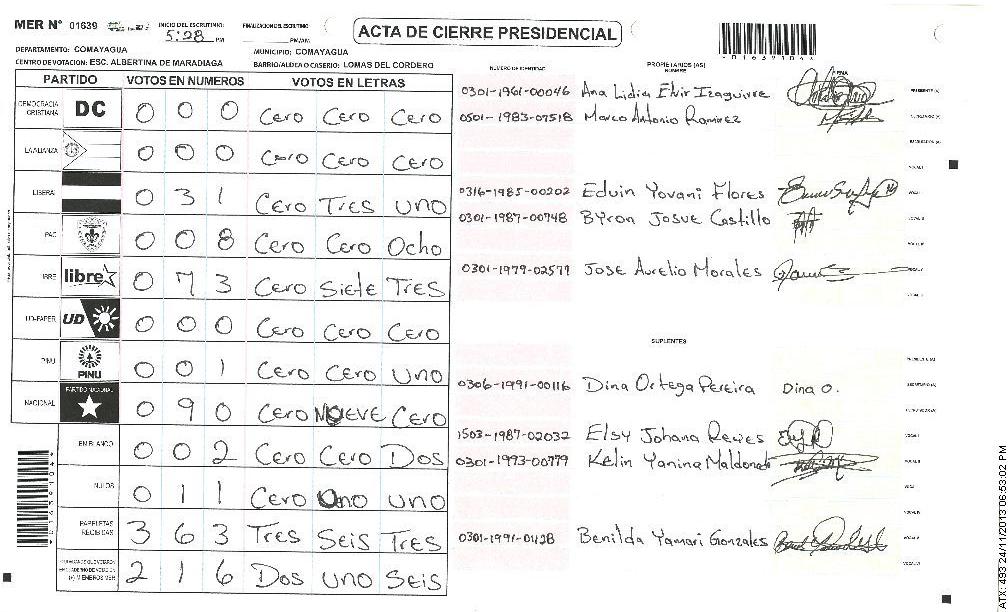 MER N° 01639
INICIO DEL ESCRUTINIO: 5:28 PM
FINALIZACION DEL ESCRUTINIO: PM/AM
ACTA DE CIERRE PRESIDENCIAL
DEPARTAMENTO: COMAYAGUA
MUNICIPIO: COMAYAGUA
CENTRO DE VOTACION: ESC. ALBERTINA DE MARADIAGA
BARRIO/ALDEA O CASERIO: LOMAS DEL CORDERO
PARTIDO VOTOS EN NUMEROS VOTOS EN LETRAS
DEMOCRACIA CRISTIANA DC 0 0 0 Cero Cero Cero
LA ALIANZA 0 0 0 Cero Cero Cero
LIBERAL 0 3 1 Cero Tres Uno
PAC 0 0 8 Cero Cero Ocho
LIBRE libre 0 7 3 Cero Siete Tres
UD-FAPER UD 0 0 0 Cero Cero Cero
PINU PINU 0 0 1 Cero Cero Uno
NACIONAL PARTIDO NACIONAL 0 9 0 Cero Nueve Cero
EN BLANCO 0 0 2 Cero Cero Dos
NULOS 0 1 1 Cero Uno Uno
PAPELETAS RECIBIDAS 3 6 3 Tres Seis Tres
2 1 6 Dos Uno Seis
NUMERO DE IDENTIDAD
PROPIETARIOS (AS)
NOMBRE
0301-1961-00046 Ana Lidia Elvir Izaguirre
0501-1983-07518 Marco Antonio Ramirez
0316-1985-00202 Eduin Yovani Flores
0301-1987-00748 Byron Josue Castillo
0301-1979-02579 Jose Aurelio Morales
SUPLENTES
0306-1991-00116 Dina Ortega Pereira Dina O.
1503-1987-02032 Elsy Johana Reyes
0301-1993-00779 Kelin Yanina Maldonado
0301-1991-0428 Benilda Yamari Gonzales
ATX: 493 24/11/2013 06:53:02 PM